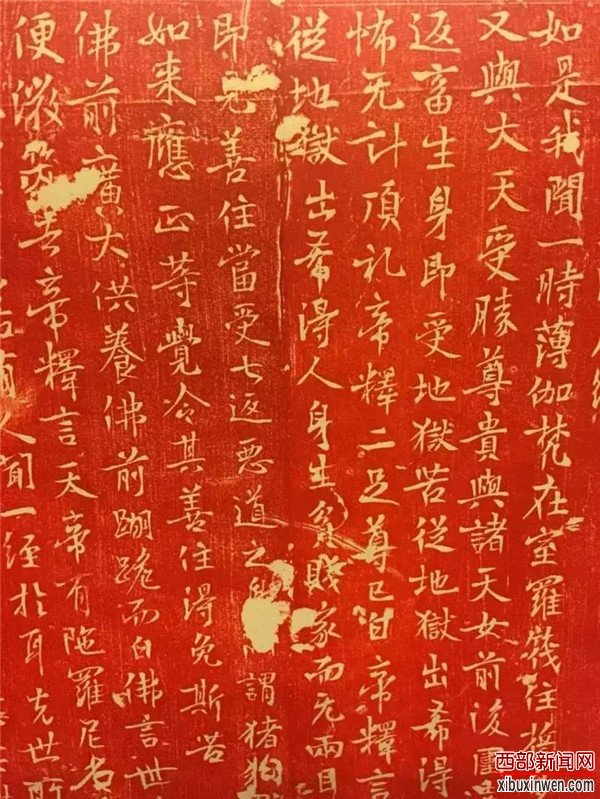 如是我聞一時薄伽梵在室羅筏住
又與大天受勝尊貴與諸天女前後圍
返畜生身即受地獄苦從地獄出希得
怖无計頂礼帝釋二足尊已白帝釋言
從地獄出希得人身生貧賤家而无兩目
即无善住當受七返惡道之身謂猪狗
如来應正等覺冷其善住得免斯苦
佛前廣大供養佛前蹦跪而白佛言世
便微笑告帝釋言天帝有陁羅尼名
人聞一經於耳先世所
西部新闻网
xibuxinwen.com